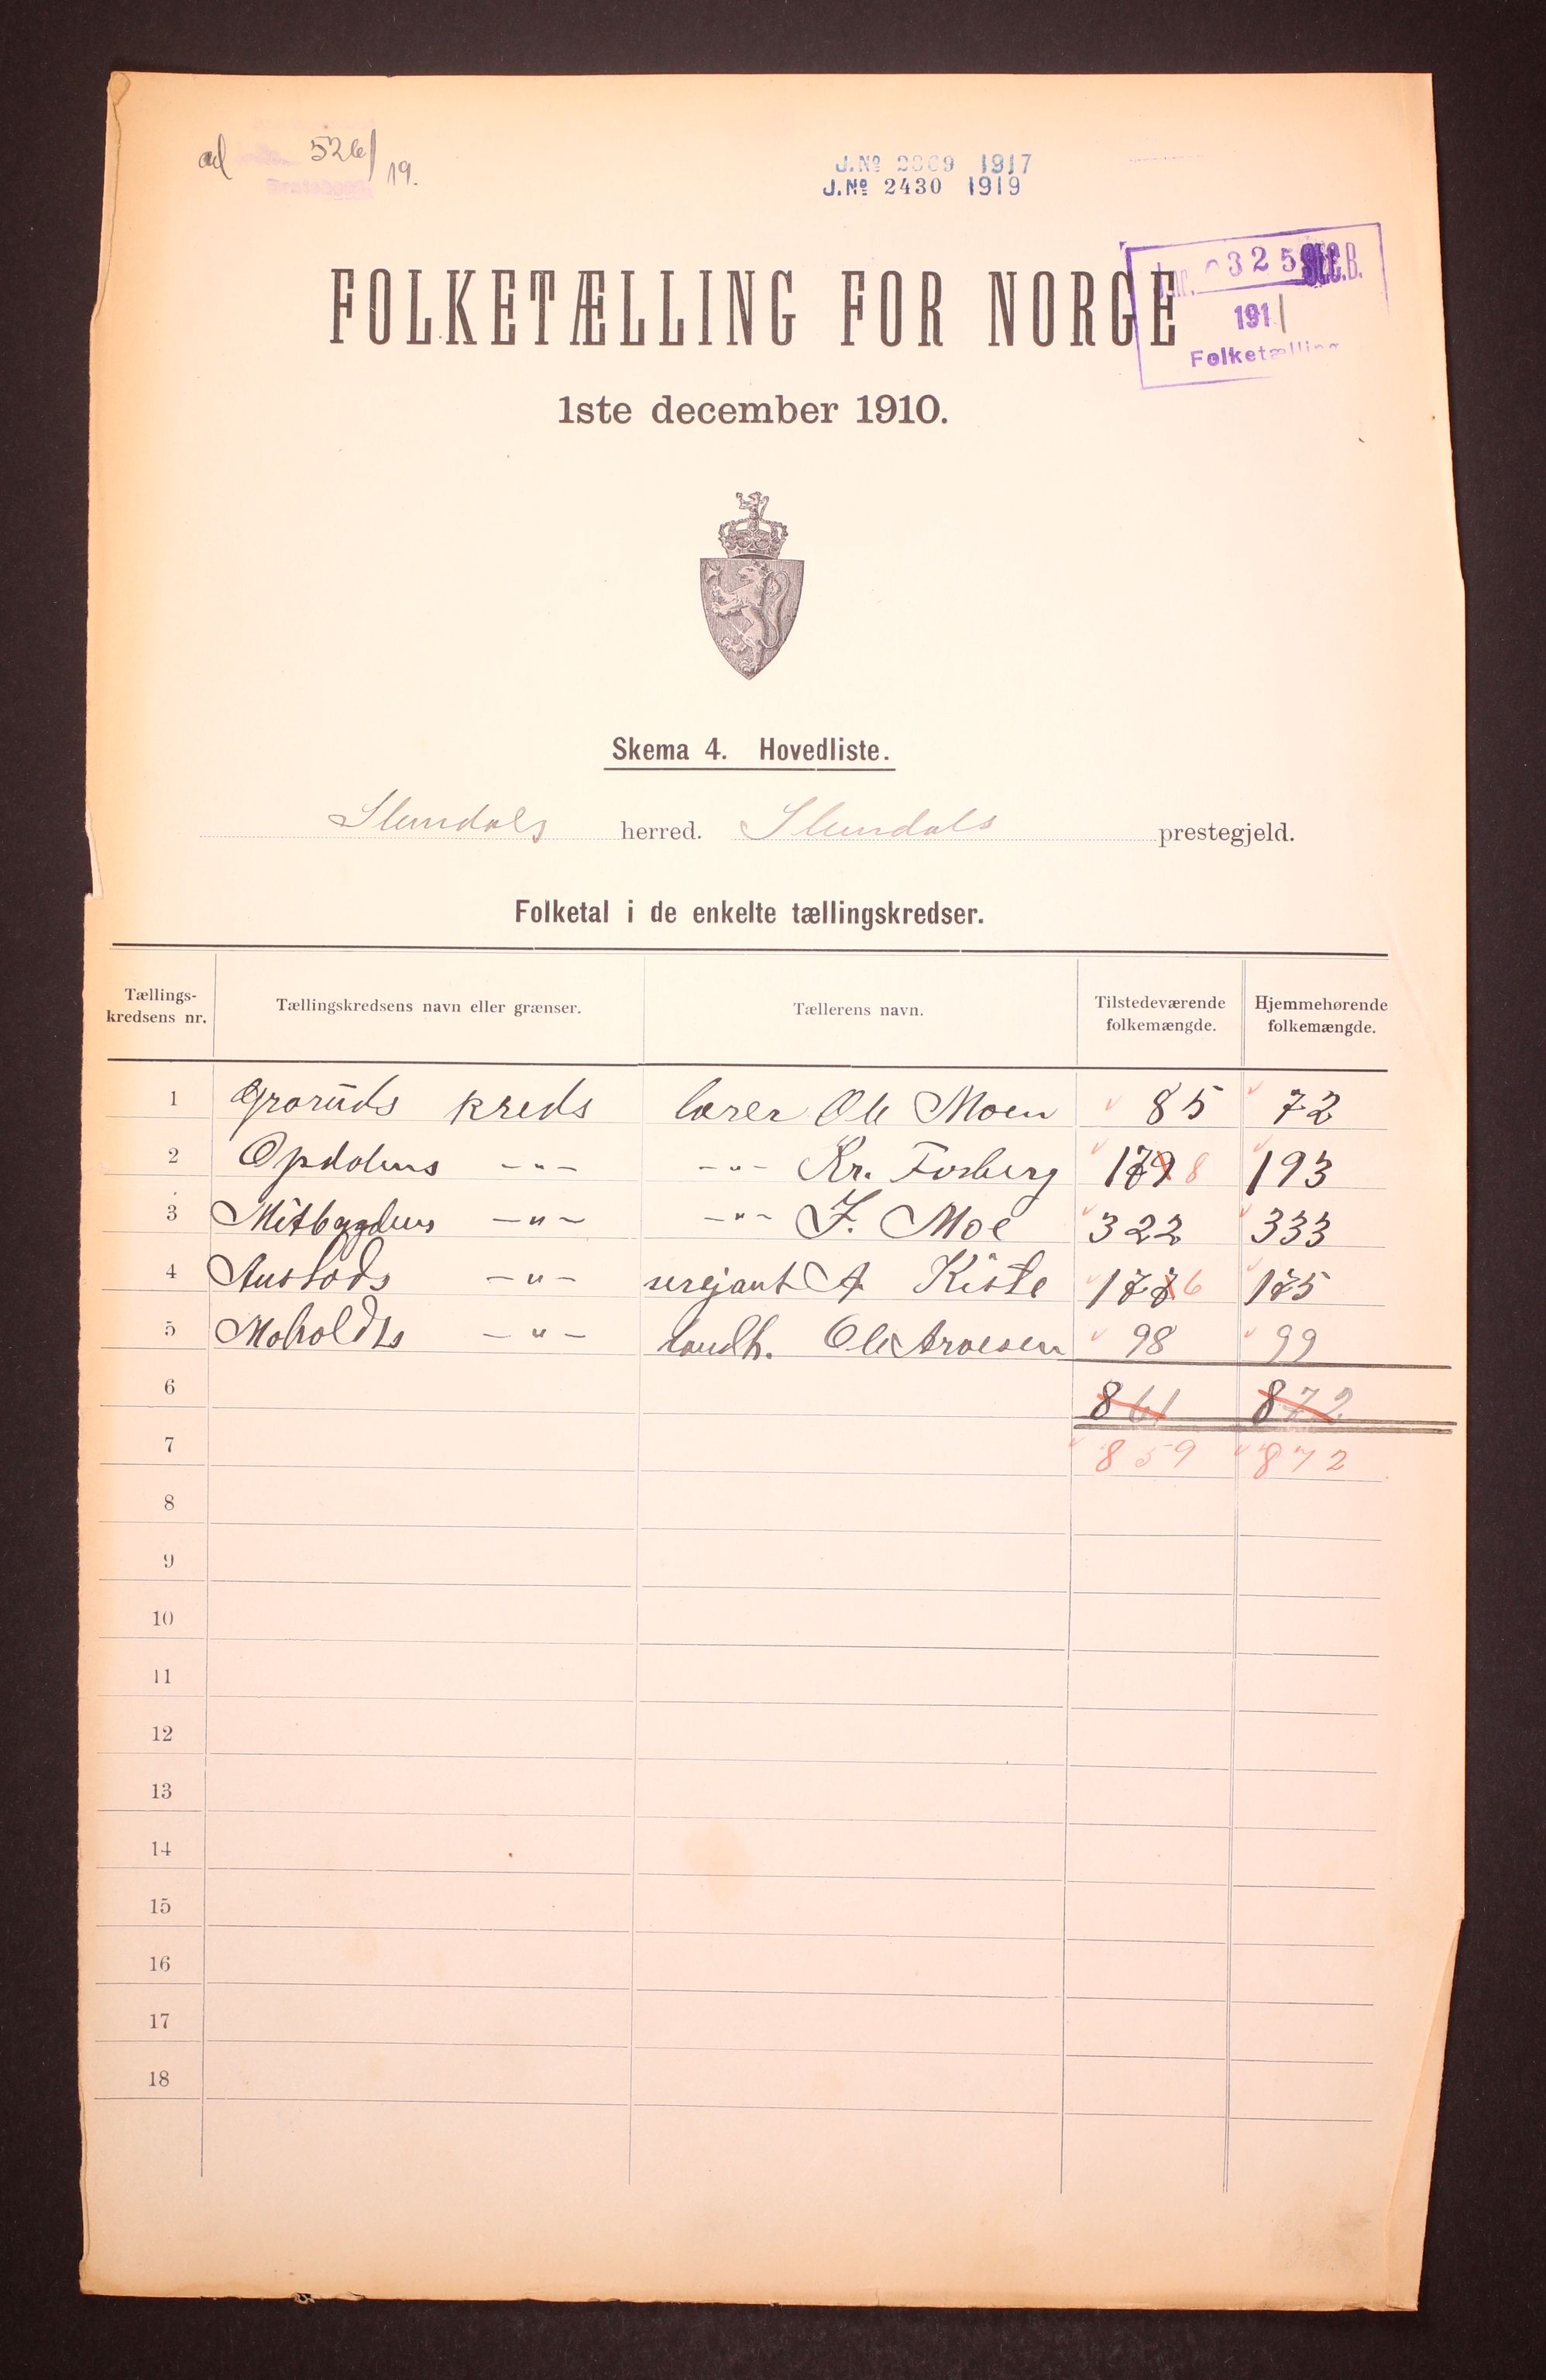 ad 526/19.
J.Nº 2069 1917
J.Nº 2430 1919
J.nr. 0325 St.C.B.
1911
Folketælling
FOLKETÆLLING FOR NORGE
1ste december 1910.
Skema 4. Hovedliste.
Slemdals herred. Slemdals prestegjeld.
Folketal i de enkelte tællingskredser.
Tællings-kredsens nr. Tællingskredsens navn eller grænser. Tællerens navn. Tilstedeværende folkemængde. Hjemmehørende folkemængde.
1 Groruds kreds lærer Ole Moen 85 72
2 Opdalens -"- -"- Kr. Fosberg 179 8 193
3 Mitbygdens -"- -"- J. Moe 322 333
4 Austods -"- sersjant A Kiste 177 6 175
5 Moholdts -"- landh. Ole Aroesen 98 99
6 861 872
7 859 872
8
9
10
11
12
13
14
15
16
17
18